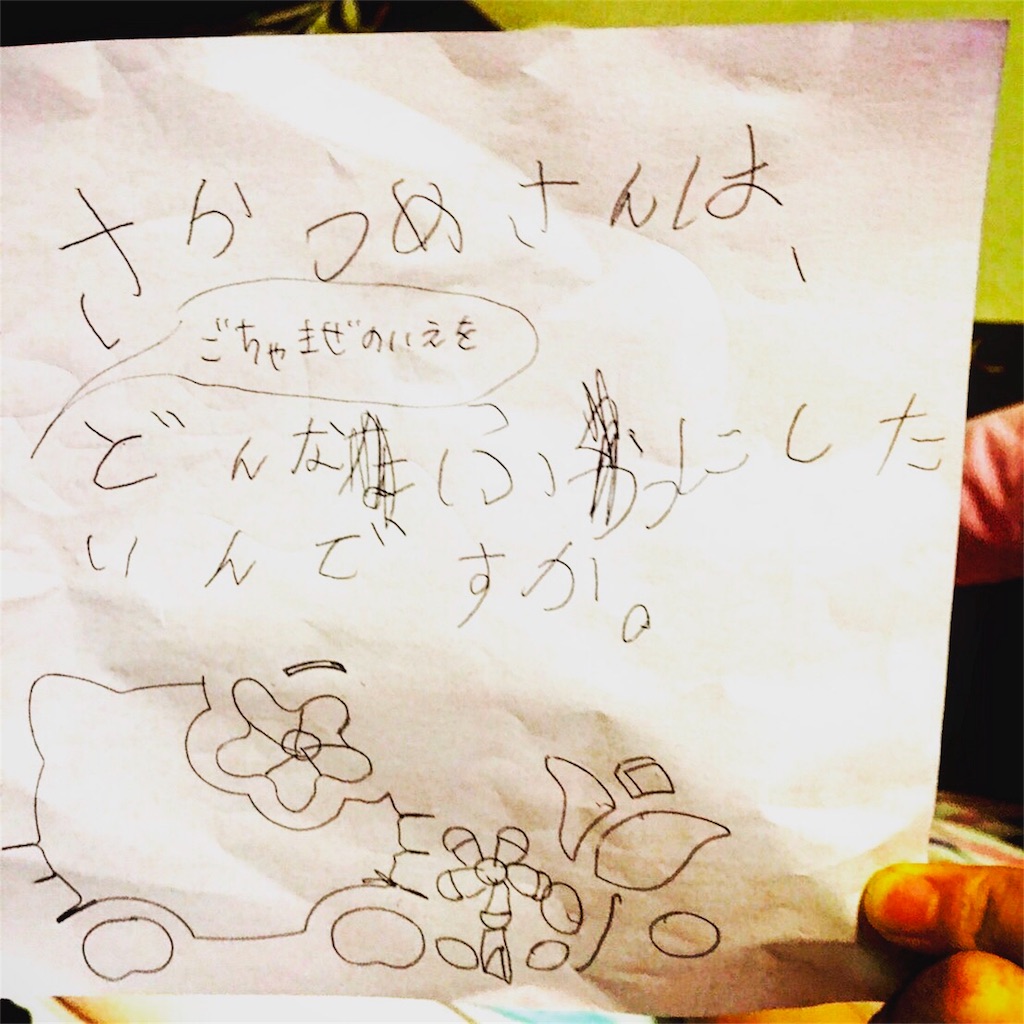 さかつめさんは、
ごちゃまぜのいえを
どんなふうにした
いんですか。